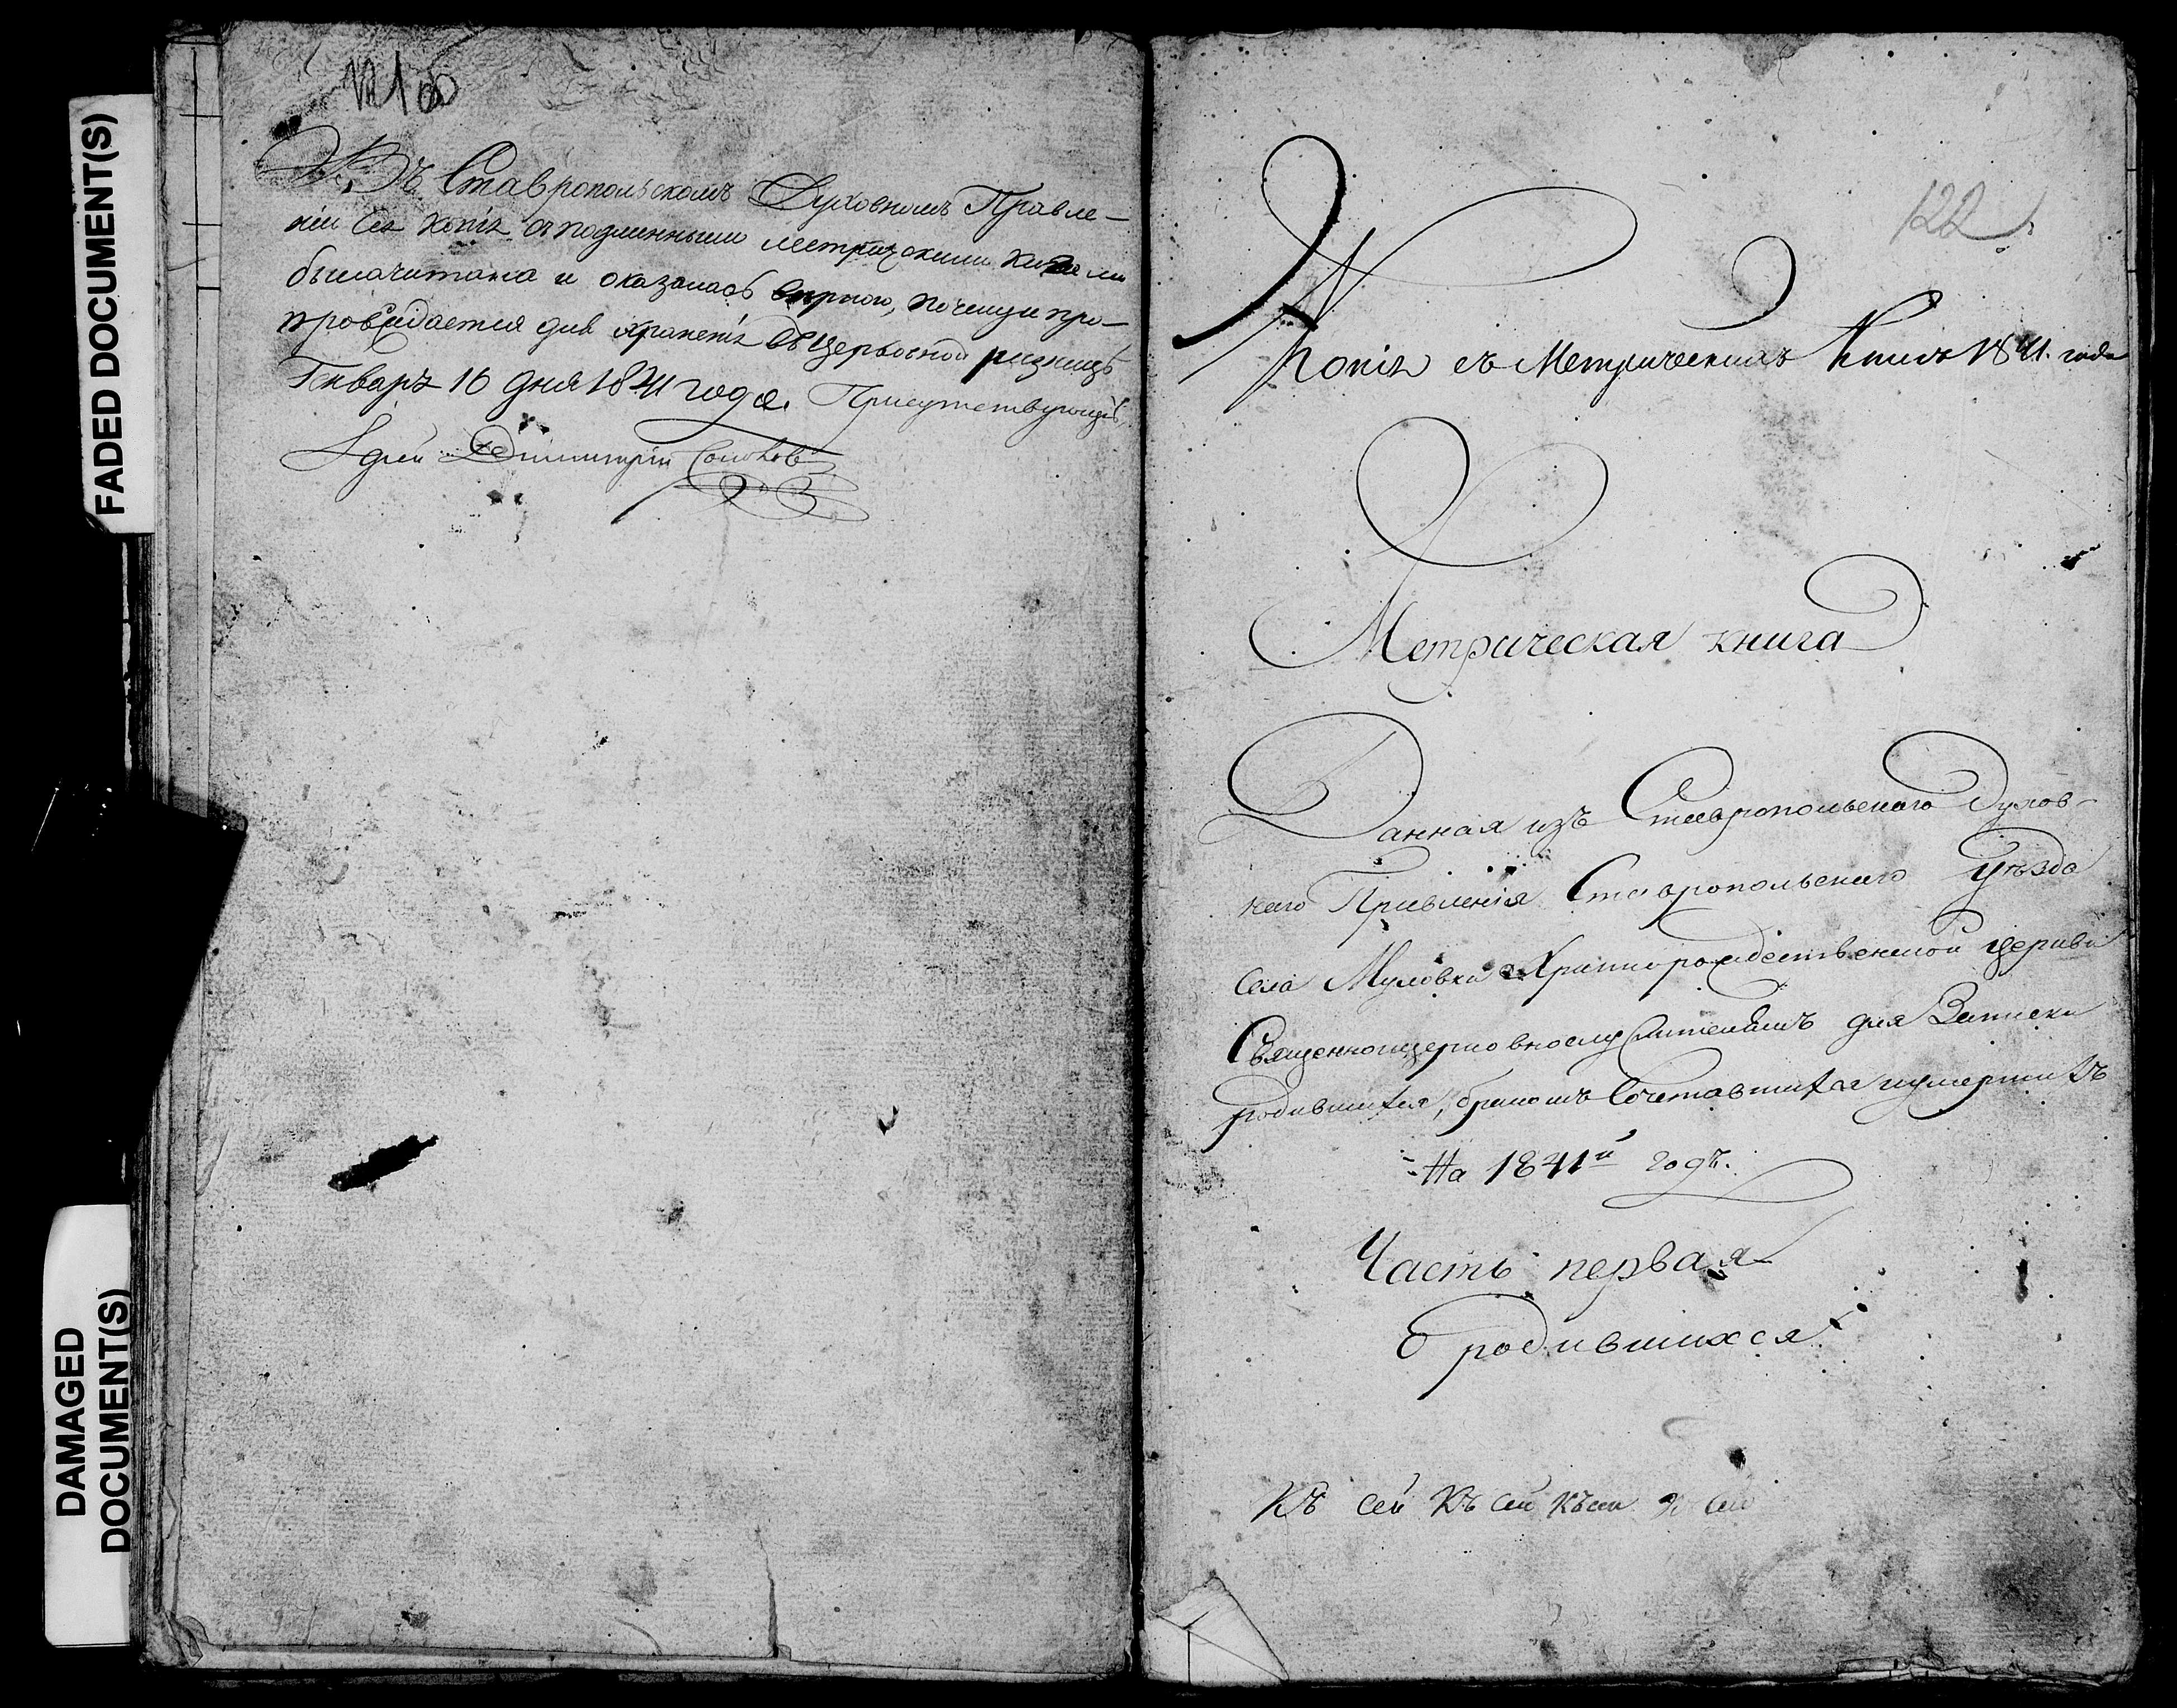 FADED DOCUMENT(S)
DAMAGED
DOCUMENT(S)
Въ Ставропольскомъ Духовномъ Правле-
ніи сія копія съ подлинными метрическими книгами
была читана и оказалась верною, почему и про-
вождается для храненія въ церковной ризницѣ
Генваря 16 дня 1841 года. Присутствующій
Іерей Димитрій
122
Копія съ Метрическихъ Книгъ 1841. года
Метрическая книга
Данная изъ Ставропольскаго Духов-
наго Правленія Ставропольскаго Уѣзда
села Муловки Христорождественской церкви
Священноцерковнослужителямъ для Записки
родившихся, бракомъ Сочетавшихся и умершихъ
На 1841й годъ.
Часть первая
О родившихся
Къ сей Къ сей Къ сей к сей